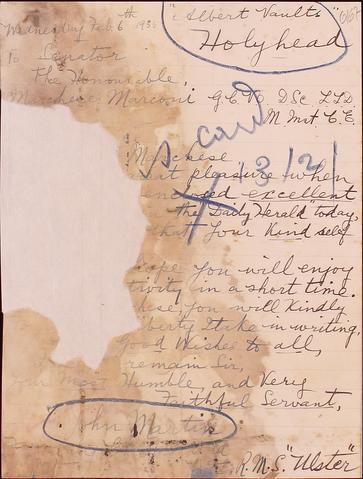 Wednesday Feb. 6th 193
"Albert Vaults"
Holyhead
To Senator
The Honourable,
Marchese Marconi G.C.V.O. DSc. LLD.
M. Inst C.E.
Marchese
pleasure when
excellent
the "Daily Herald" today,
that your kind self
you will enjoy
in a short time.
you will kindly
I take in writing,
Good Wishes to all,
remain Sir,
Your Most Humble, and Very
Faithful Servant,
John Martin
R.M.S. "Ulster"